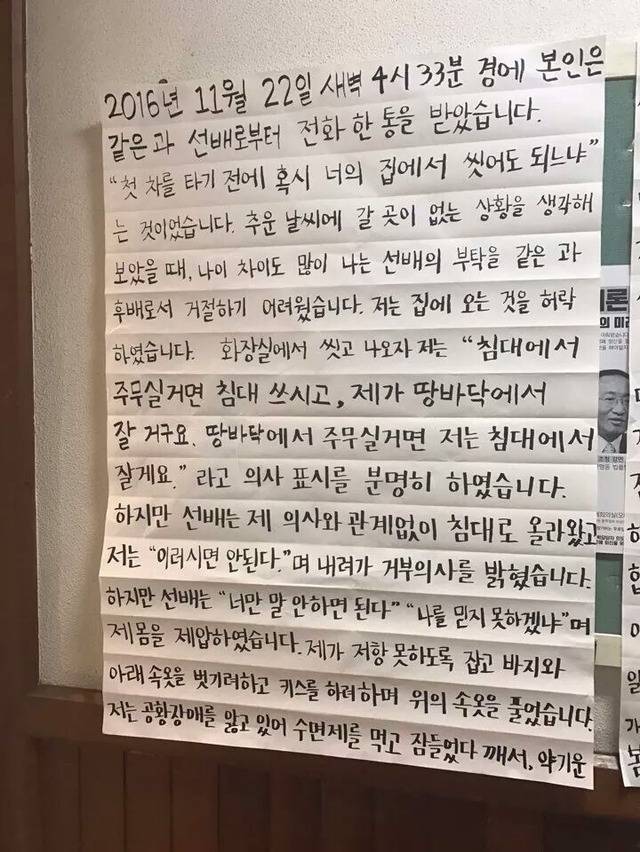 2016년 11월 22일 새벽 4시 33분 경에 본인은
같은 과 선배로부터 전화 한 통을 받았습니다.
"첫 차를 타기 전에 혹시 너의 집에서 씻어도 되느냐"
는 것이었습니다. 추운 날씨에 갈 곳이 없는 상황을 생각해
보았을 때, 나이 차이도 많이 나는 선배의 부탁을 같은 과
후배로서 거절하기 어려웠습니다. 저는 집에 오는 것을 허락
하였습니다. 화장실에서 씻고 나오자 저는 "침대에서
주무실거면 침대 쓰시고, 제가 땅바닥에서
잘 거구요. 땅바닥에서 주무실거면 저는 침대에서
잘게요." 라고 의사 표시를 분명히 하였습니다.
하지만 선배는 제 의사와 관계없이 침대로 올라왔고
저는 "이러시면 안된다."며 내려가 거부의사를 밝혔습니다.
하지만 선배는 "너만 말 안하면 된다" "나를 믿지 못하겠냐"며
제 몸을 제압하였습니다. 제가 저항 못하도록 잡고 바지와
아래 속옷을 벗기려하고 키스를 하려하며 위의 속옷을 풀었습니다.
저는 공황장애를 앓고 있어 수면제를 먹고 잠들었다 깨서, 약기운